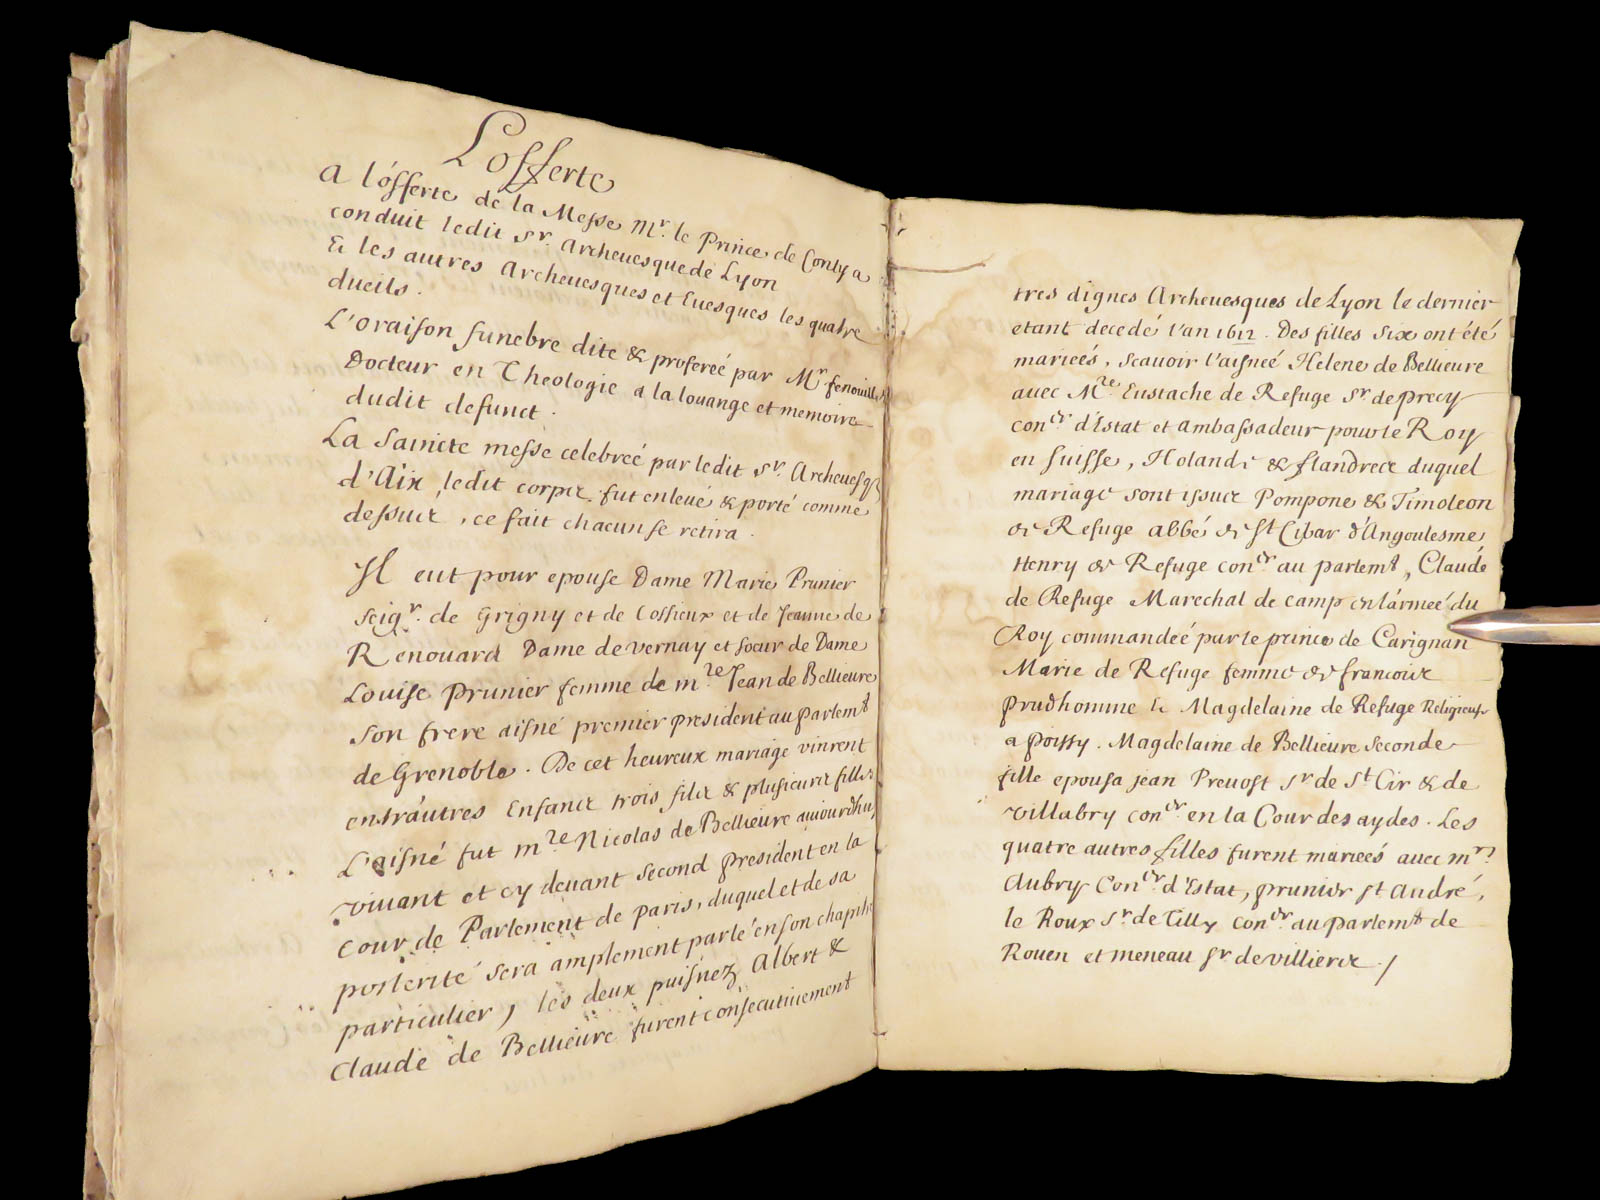 L'offerte
A l'offerte de la Messe Mr. le Prince de Conty a
conduit ledit Sr. Archeuesque de Lyon
Et les autres Archeuesques et Euesques les quatre
dueils.
L'oraison funebre dite & proferéé par Mr fenouillet
Docteur en Theologie a la louange et memoire
dudit defunct.
La Saincte messe celebreé par ledit Sr. Archeuesq
d'Aix, ledit corps fut enleué & porté comme
dessus, ce fait chacun se retira.
Il eut pour epouse Dame Marie Prunier
seigr. de Grigny et de Cossieux et de Jeanne de
Renouard Dame de vernay et soeur de Dame
Louise Prunier femme de mre Jean de Bellieure
son frere aisné premier president au parlemt
de Grenoble. De cet heureux mariage vinrent
entr'autres Enfans trois fils & plusieurs filles
L'aisné fut mre Nicolas de Bellieure aujourdhuy
viuant et cy deuant second president en la
cour de Parlement de paris, duquel et de sa
posterité sera amplement parlé en son chapitre
particulier, les deux puisnez Albert &
Claude de Bellieure furent consecutiuement
tres dignes Archeuesques de Lyon le dernier
etant decedé l'an 1612. Des filles six ont été
marieés, scauoir l'aisneé Helene de Bellieure
auec Mre Eustache de Refuge Sr de precy
coner d'Estat et ambassadeur pour le Roy
en suisse, Holande & flandres duquel
mariage sont issus Pompone & Timoleon
de Refuge abbé de St Cibar d'Angoulesme
Henry de Refuge coner au parlemt, Claude
de Refuge Marechal de camp en l'armeé du
Roy commandeé par le prince de Carignan
Marie de Refuge femme de francois
prudhomme & Magdelaine de Refuge Religieuse
a poissy. Magdelaine de Bellieure seconde
fille epousa jean Preuost Sr de St Cir & de
villabry coner. en la Cour des aydes. Les
quatre autres filles furent marieés auec mrs
Aubry Coner d'Estat, prunier st André,
le Roux Sr de Tilly coner au parlemt de
Rouen et meneau sr de villiers ./